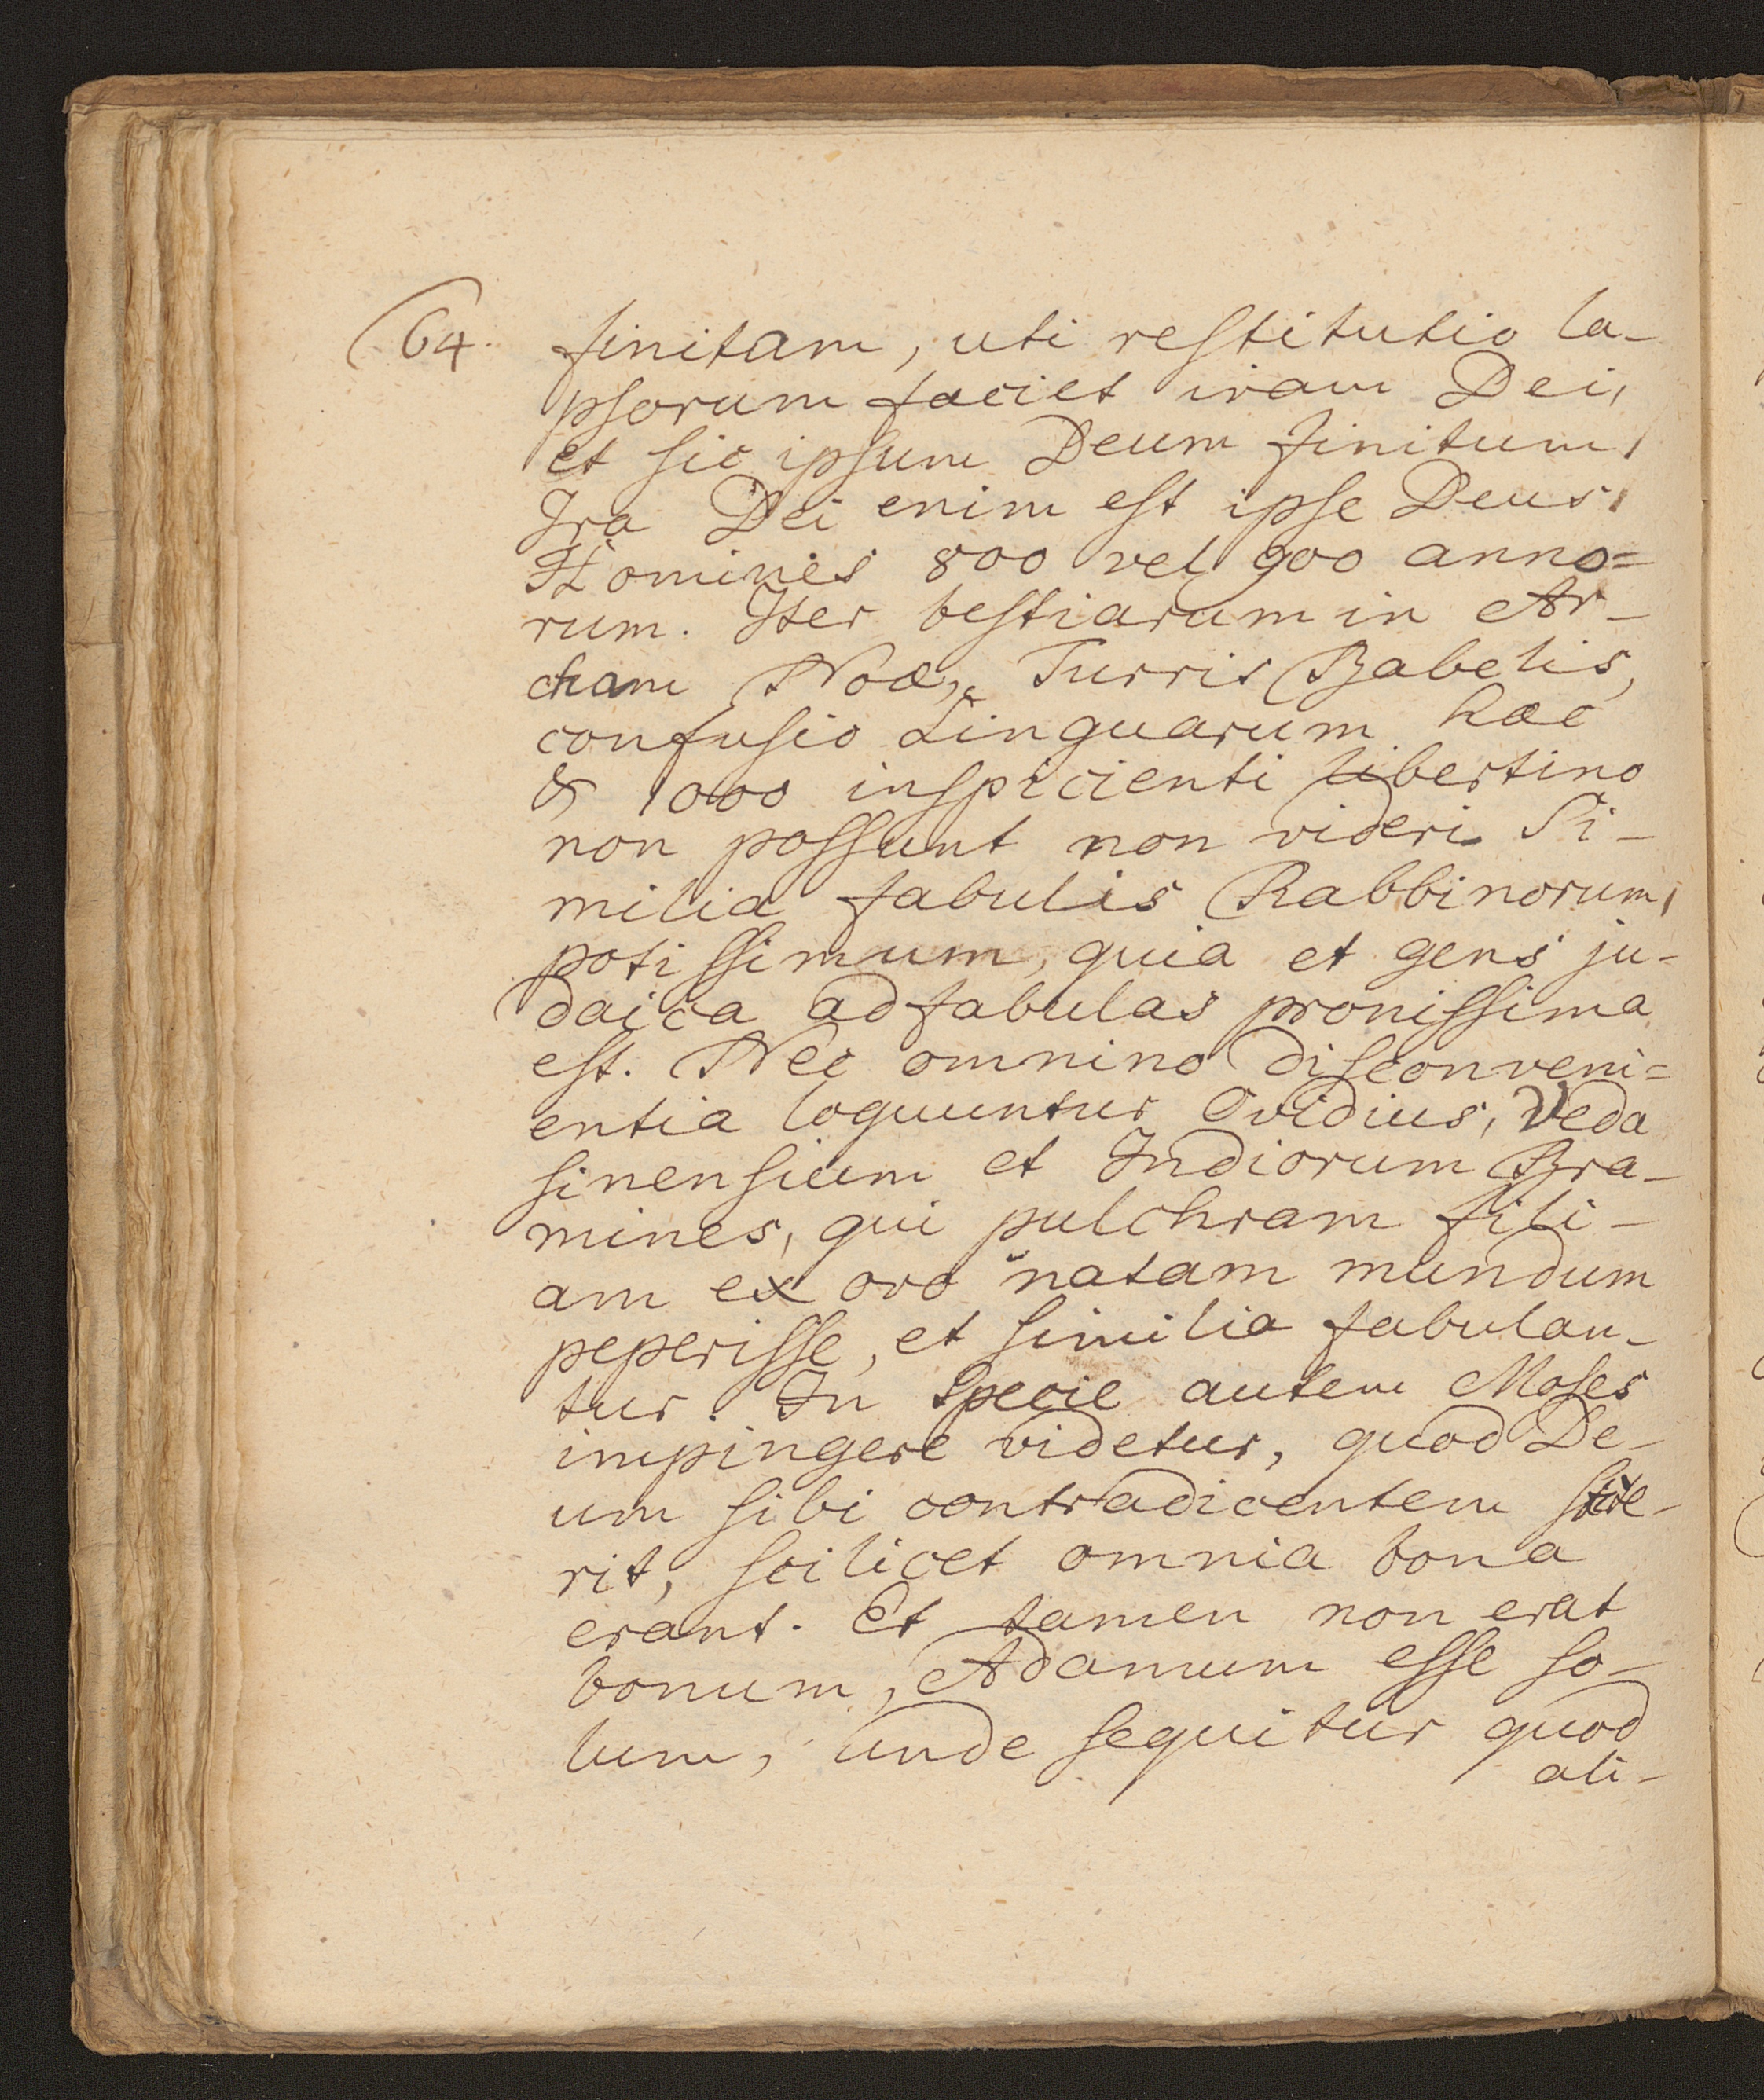 64. finitam, uti reſtitutio la-
pſorum faciet iram Dei,
et ſic ipſum Deum finitum,
Ira Dei enim eſt ipſe Deus,
Homines 800 vel 900 anno=
rum. Iter beſtiarum in Ar-
cham Noæ, Turris Babelis,
confuſio Linguarum hæc
& 1000 inſpicienti libertino
non poſſunt non videri Si-
milia fabulis Rabbinorum,
potiſſimum, quia et gens ju-
daica ad fabulas proniſſima
eſt. Nec omnino diſconveni=
entia loquuntur Ovidius, Veda
ſinenſium et Indiorum Bra-
mines, qui pulchram fili-
am ex ovo natam mundum
peperiſſe, et ſimilia fabulan-
tur. In Specie autem Moſes
impingere videtur, quod De-
um ſibi contradicentem
rit, ſcilicet omnia bona
erant. Et tamen non erat
bonum, Adamum eſſe ſo-
lum, unde ſequitur quod
ali-